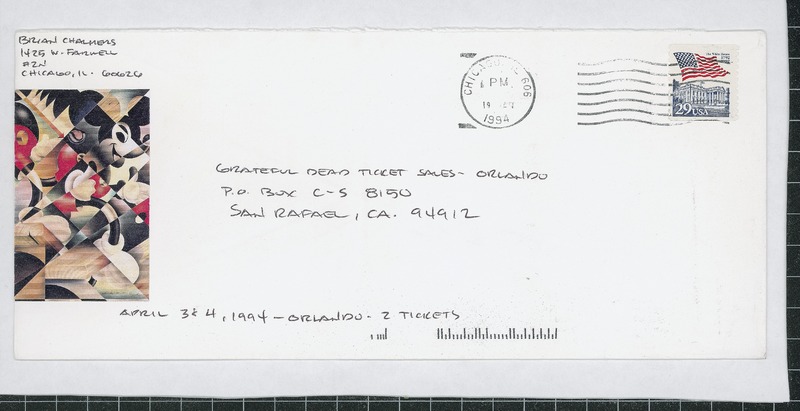 BRIAN CHALMERS
1425 W. FARWELL
#2N
CHICAGO, IL. 60626
CHICAGO, IL 606
PM
19
1994
The White House
29 USA
GRATEFUL DEAD TICKET SALES - ORLANDO
P.O. BOX C-S 8150
SAN RAFAEL, CA. 94912
APRIL 3 & 4, 1994 - ORLANDO - 2 TICKETS